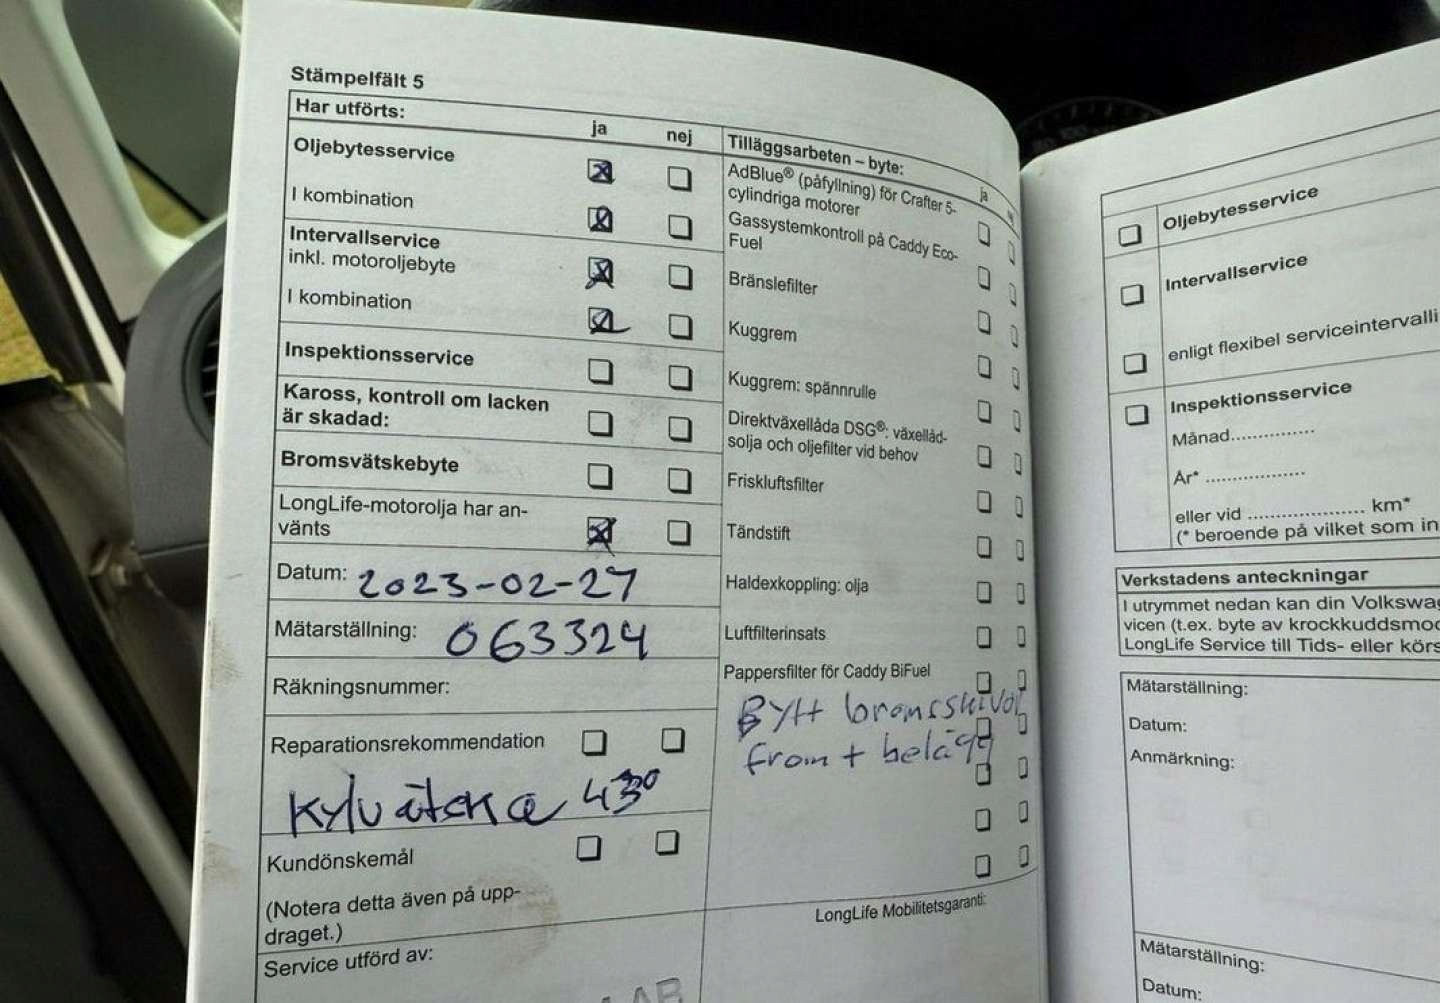 Stämpelfält 5
Har utförts:
ja nej
Oljebytesservice
I kombination
Intervallservice
inkl. motoroljebyte
I kombination
Inspektionsservice
Kaross, kontroll om lacken
är skadad:
Bromsvätskebyte
LongLife-motorolja har an-
vänts
Datum: 2023-02-27
Mätarställning: 063324
Räkningsnummer:
Reparationsrekommendation
Kylvätska 43°
Kundönskemål
(Notera detta även på upp-
draget.)
Service utförd av:
AB
Tilläggsarbeten – byte:
ja
AdBlue® (påfyllning) för Crafter 5-
cylindriga motorer
Gassystemkontroll på Caddy Eco-
Fuel
Bränslefilter
Kuggrem
Kuggrem: spännrulle
Direktväxellåda DSG®: växellåd-
solja och oljefilter vid behov
Friskluftsfilter
Tändstift
Haldexkoppling: olja
Luftfilterinsats
Pappersfilter för Caddy BiFuel
Bytt bromsskivor
fram + belägg
LongLife Mobilitetsgaranti:
Oljebytesservice
Intervallservice
enligt flexibel serviceintervalli
Inspektionsservice
Månad...............
År* ..................
eller vid ..................... km*
(* beroende på vilket som in
Verkstadens anteckningar
I utrymmet nedan kan din Volkswag
vicen (t.ex. byte av krockkuddsmod
LongLife Service till Tids- eller körs
Mätarställning:
Datum:
Anmärkning:
Mätarställning:
Datum: